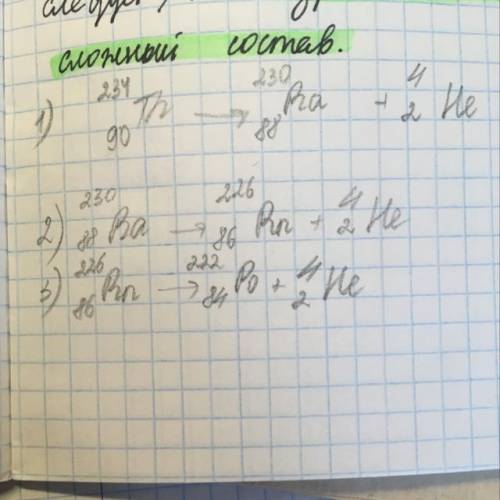 сложный состав.
1) ²³⁴₉₀Th → ²³⁰₈₈Ra + ⁴₂He
2) ²³⁰₈₈Ra → ²²⁶₈₆Rn + ⁴₂He
3) ²²⁶₈₆Rn → ²²²₈₄Po + ⁴₂He